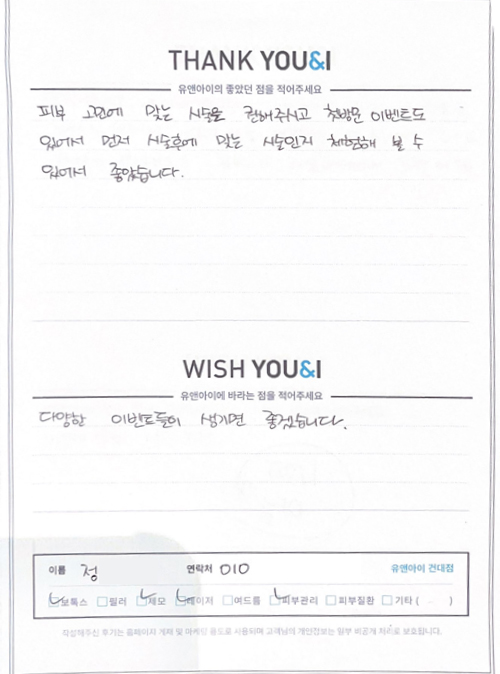 THANK YOU&I
유앤아이의 좋았던 점을 적어주세요
피부 고민에 맞는 시술을 권해주시고 첫방문 이벤트도
있어서 먼저 시술후에 맞는 시술인지 체험해 볼 수
있어서 좋았습니다.
WISH YOU&I
유앤아이에 바라는 점을 적어주세요
다양한 이벤트들이 생기면 좋겠습니다.
이름 정 연락처 010 유앤아이 건대점
보톡스 필러 제모 레이저 여드름 피부관리 피부질환 기타 ( )
작성해주신 후기는 홈페이지 게재 및 마케팅 용도로 사용되며 고객님의 개인정보는 일부 비공개 처리로 보호됩니다.